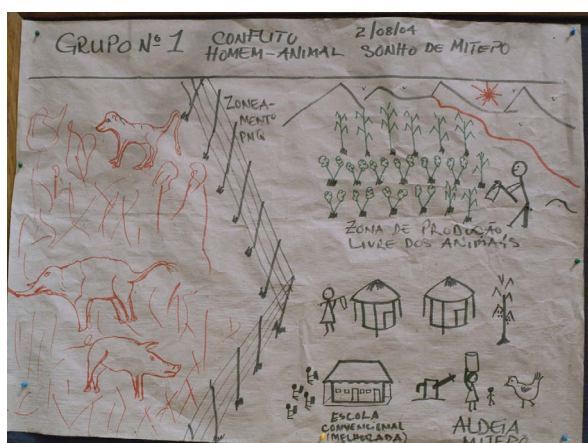 GRUPO Nº 1
CONFLITO
HOMEM-ANIMAL
2/08/04
SONHO DE MITEPO
ZONEA-
MENTO
PNQ
ZONA DE PRODUÇÃO
LIVRE DOS ANIMAIS
ESCOLA
CONVENCIONAL
(MELHORADA)
ALDEIA
MITEPO